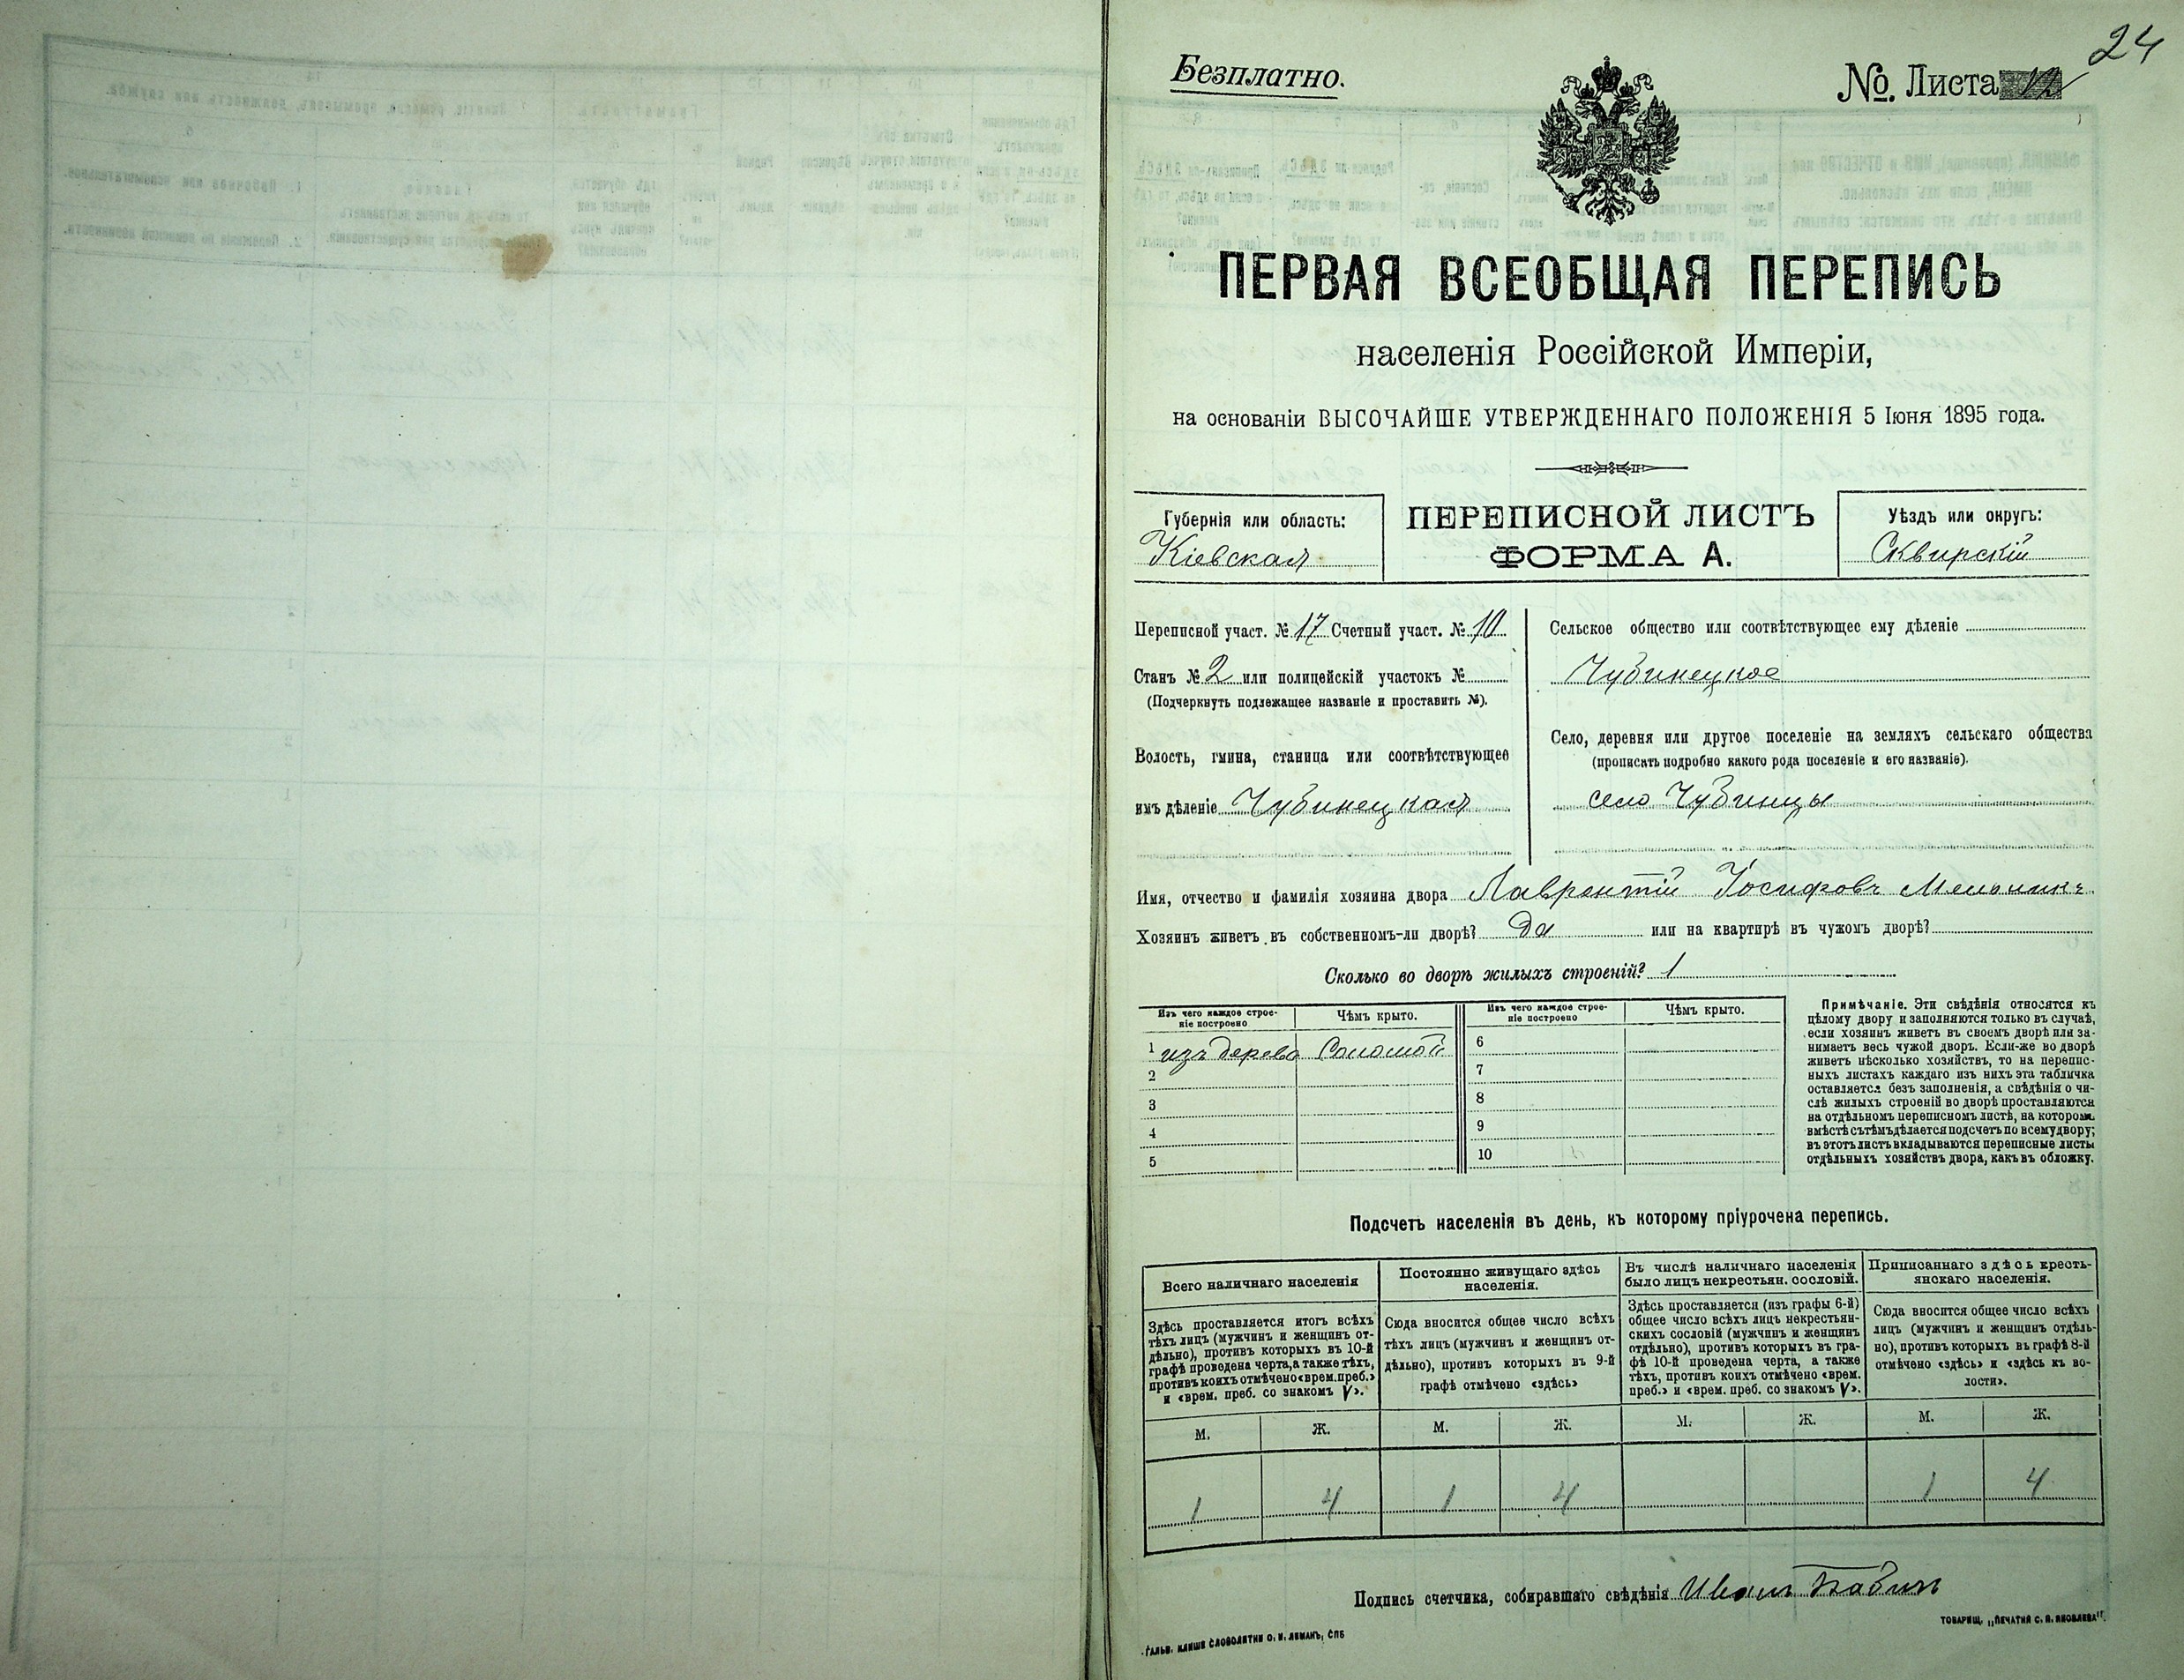 24
Безплатно.
№. Листа 12
ПЕРВАЯ ВСЕОБЩАЯ ПЕРЕПИСЬ
населенія Россійской Имперіи,
на основаніи ВЫСОЧАЙШЕ УТВЕРЖДЕННАГО ПОЛОЖЕНІЯ 5 Іюня 1895 года.
Губернія или область:
Кіевская
ПЕРЕПИСНОЙ ЛИСТЪ
ФОРМА А.
Уѣздъ или округъ:
Сквирскій
Переписной участ. № 17 Счетный участ. № 10
Станъ № 2 или полицейскій участокъ №
(Подчеркнуть подлежащее названіе и проставить №).
Волость, гмина, станица или соотвѣтствующее
имъ дѣленіе Чубинецкая
Сельское общество или соотвѣтствующее ему дѣленіе
Чубинецкое
Село, деревня или другое поселеніе на земляхъ сельскаго общества
(прописать подробно какого рода поселеніе и его названіе).
село Чубинцы
Имя, отчество и фамилія хозяина двора Лаврентій Іосифовъ Мельникъ
Хозяинъ живетъ въ собственномъ-ли дворѣ? Да или на квартирѣ въ чужомъ дворѣ?
Сколько во дворѣ жилыхъ строеній? 1
Изъ чего каждое строе-
ніе построено
Чѣмъ крыто.
Изъ чего каждое строе-
ніе построено
Чѣмъ крыто.
1 изъ дерева Соломой 6
2 7
3 8
4 9
5 10
Примѣчаніе. Эти свѣдѣнія относятся къ
цѣлому двору и заполняются только въ случаѣ,
если хозяинъ живетъ въ своемъ дворѣ или за-
нимаетъ весь чужой дворъ. Если-же во дворѣ
живетъ нѣсколько хозяйствъ, то на перепис-
ныхъ листахъ каждаго изъ нихъ эта табличка
оставляется безъ заполненія, а свѣдѣнія о чи-
слѣ жилыхъ строеній во дворѣ проставляются
на отдѣльномъ переписномъ листѣ, на которомъ
вмѣстѣ съ тѣмъ дѣлается подсчетъ по всему двору;
въ этотъ листъ вкладываются переписные листы
отдѣльныхъ хозяйствъ двора, какъ въ обложку.
Подсчетъ населенія въ день, къ которому пріурочена перепись.
Всего наличнаго населенія
Здѣсь проставляется итогъ всѣхъ
тѣхъ лицъ (мужчинъ и женщинъ от-
дѣльно), противъ которыхъ въ 10-й
графѣ проведена черта, а также тѣхъ,
противъ коихъ отмѣчено «врем. преб.»
и «врем. преб. со знакомъ V».
Постоянно живущаго здѣсь
населенія.
Сюда вносится общее число всѣхъ
тѣхъ лицъ (мужчинъ и женщинъ от-
дѣльно), противъ которыхъ въ 9-й
графѣ отмѣчено «здѣсь»
Въ числѣ наличнаго населенія
было лицъ некрестьян. сословій.
Здѣсь проставляется (изъ графы 6-й)
общее число всѣхъ лицъ некрестьян-
скихъ сословій (мужчинъ и женщинъ
отдѣльно), противъ которыхъ въ гра-
фѣ 10-й проведена черта, а также
тѣхъ, противъ коихъ отмѣчено «врем.
преб.» и «врем. преб. со знакомъ V».
Приписаннаго здѣсь кресть-
янскаго населенія.
Сюда вносится общее число всѣхъ
лицъ (мужчинъ и женщинъ отдѣль-
но), противъ которыхъ въ графѣ 8-й
отмѣчено «здѣсь» и «здѣсь къ во-
лости».
М. Ж. М. Ж. М. Ж. М. Ж.
1 4 1 4 1 4
Подпись счетчика, собиравшаго свѣдѣнія Иванъ Бабичъ
ГАЛЬВ. КЛИШЕ СЛОВОЛИТНИ О. И. ЛЕМАНЪ, СПБ
ТОВАРИЩ. „ПЕЧАТНЯ С. П. ЯКОВЛЕВА".